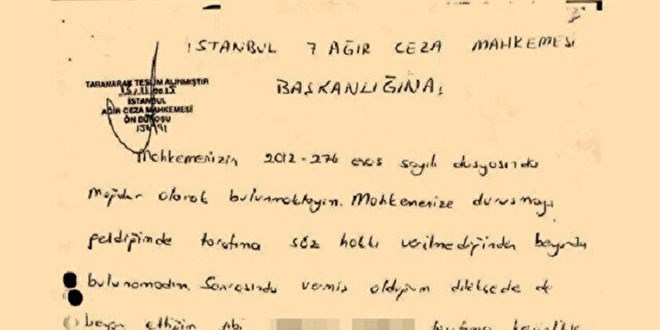 İSTANBUL 7 AĞIR CEZA MAHKEMESİ
BAŞKANLIĞINA,
TARANARAK TESLİM ALINMIŞTIR
İSTANBUL
AĞIR CEZA MAHKEMESİ
ÖN BÜROSU
Mahkemenizin 2012-276 esas sayılı dosyasında
Mağdur olarak bulunmaktayım. Mahkemenize duruşmaya
geldiğimde tarafıma söz hakkı verilmediğinden beyanda
bulunamadım. Sonrasında vermiş olduğum dilekçede de
beyan ettiğim gibi tarafıma